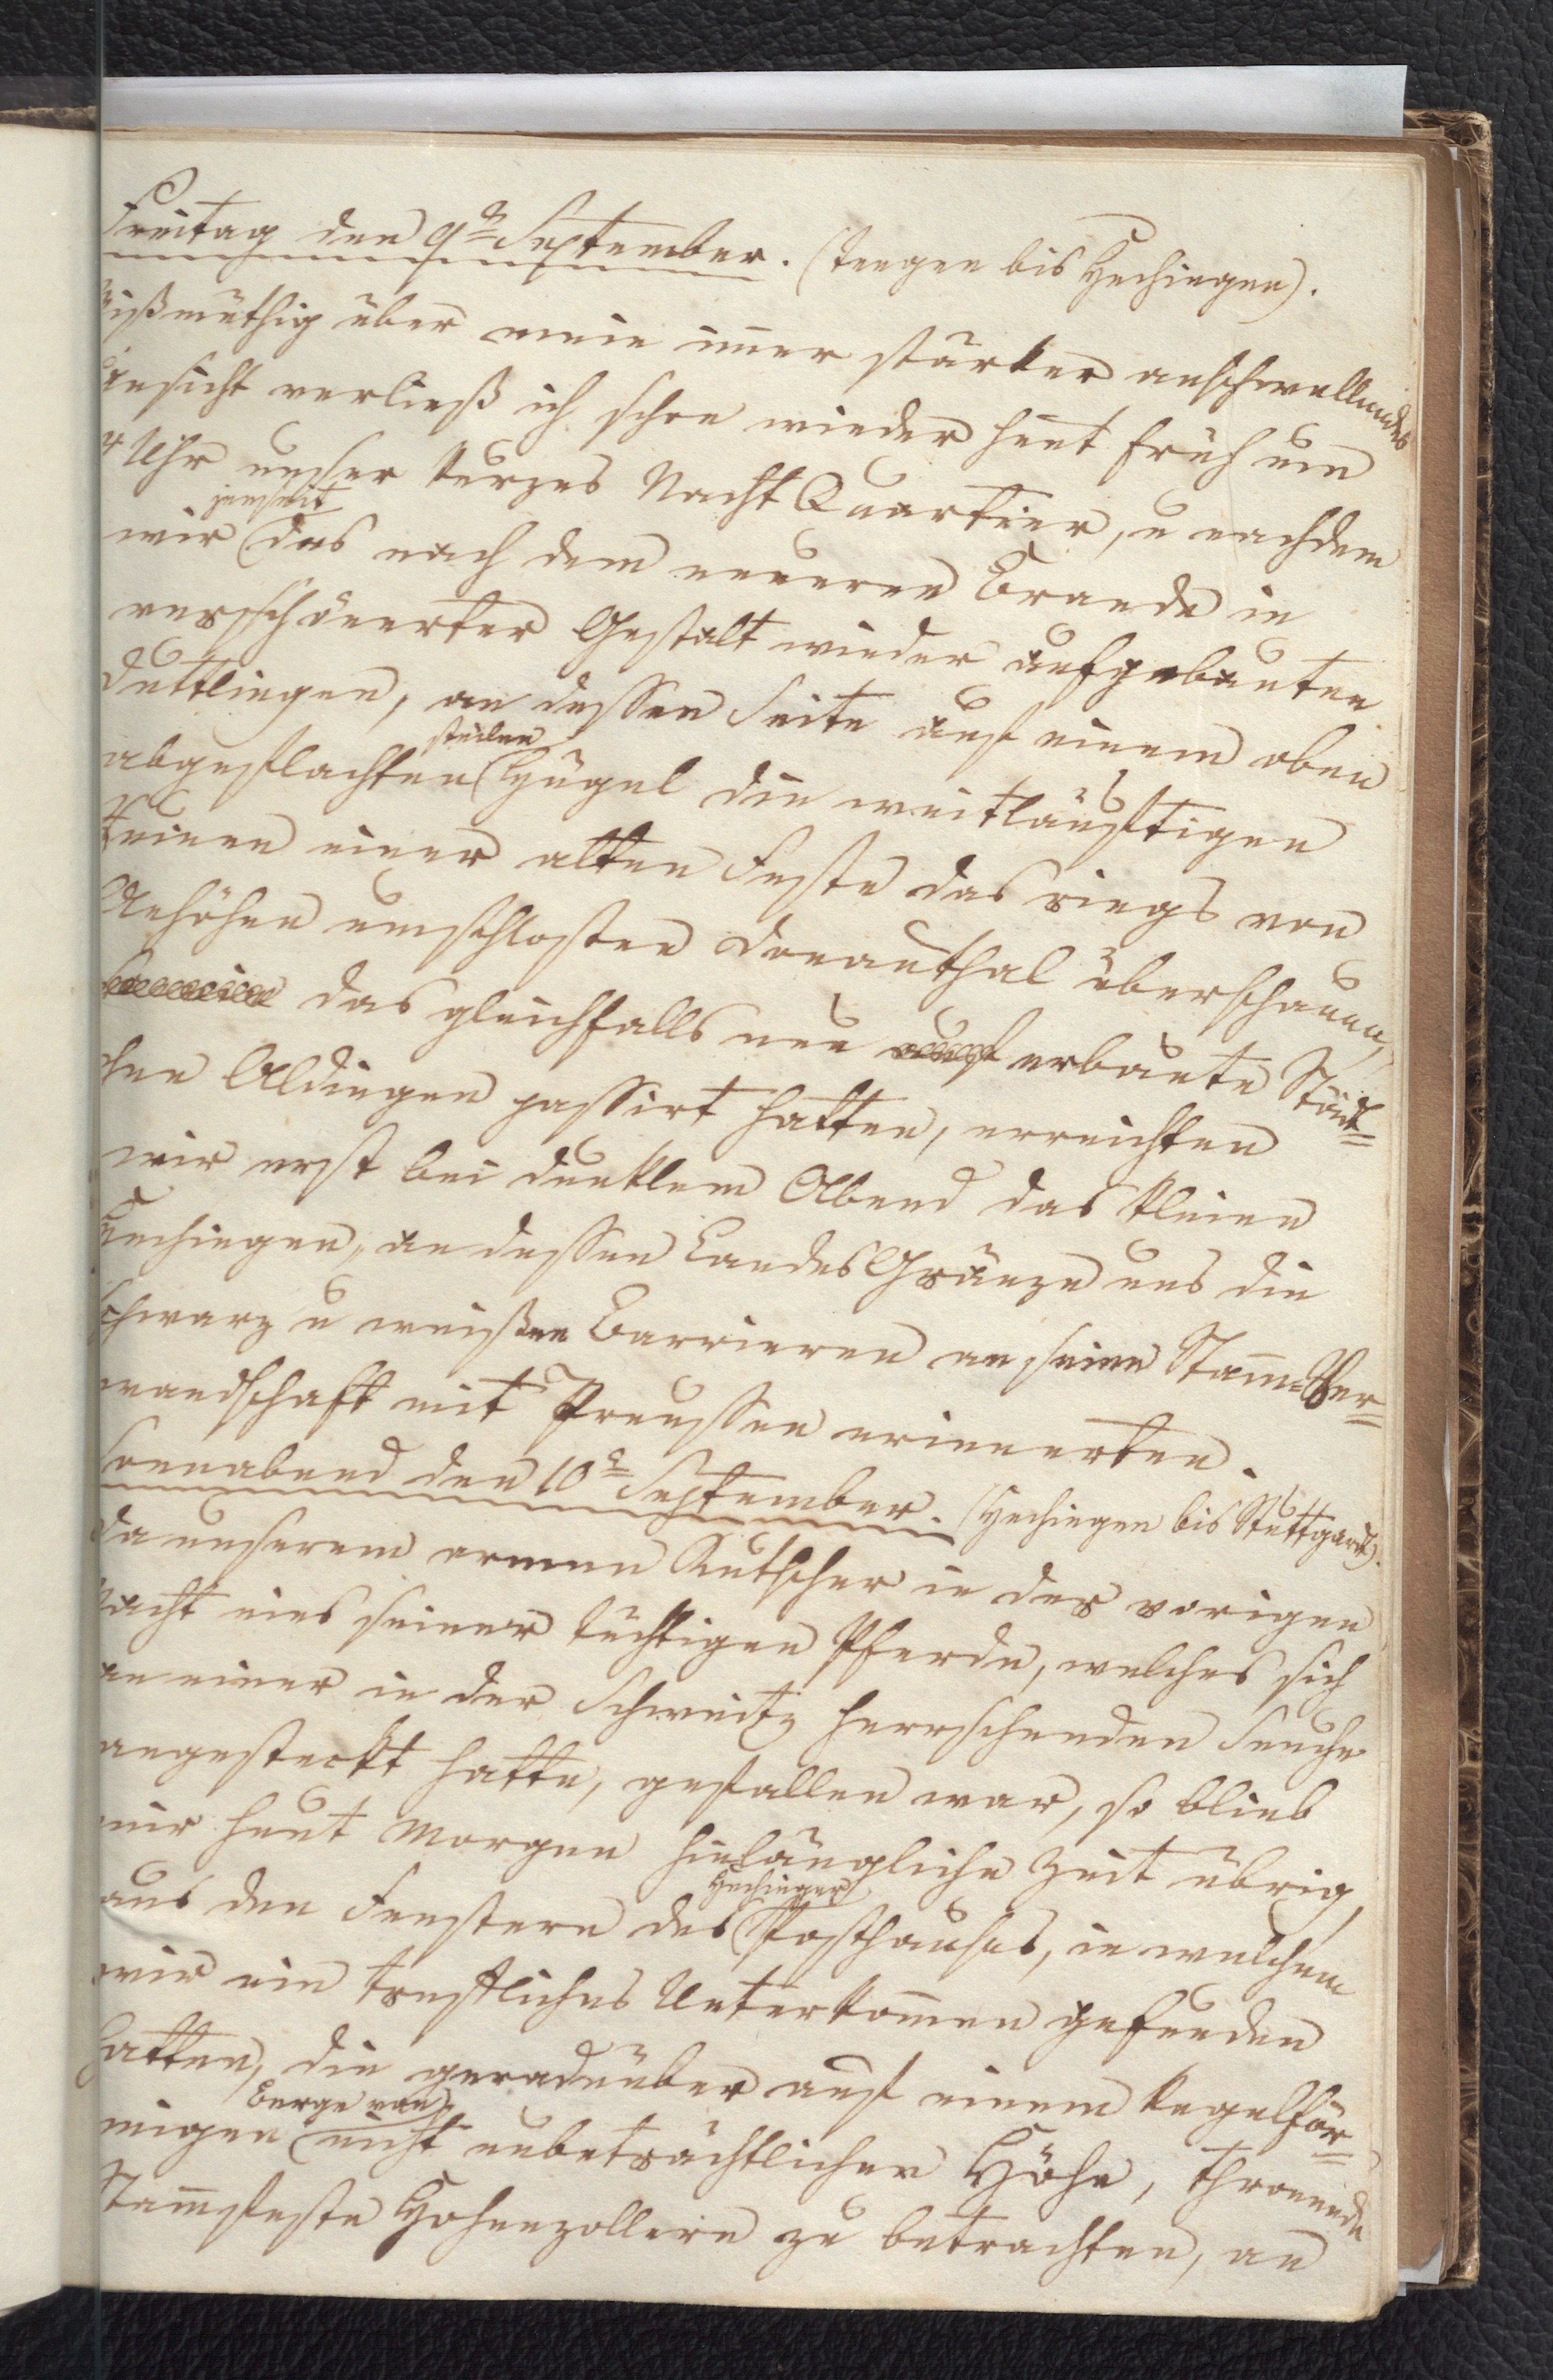 Freitag den 9n September. (Tengen bis Hechingen).
Mißmüthig über mein im̄er stärker anschwellendes
Gesicht verließ ich schon wieder heut früh um
4 Uhr unser kurzes Nacht Quartier, u nachdem
jenseit
wir das nach dem neueren Brande in
verschönerter Gestalt wieder aufgebauten
Duttlingen, an dessen Seite auf einem oben
steilen
abgeflachten Hügel die weitläuftigen
Ruinen einer alten Feste das rings von
Anhöhen umschlossten Donauthal überschauen,
das gleichfalls neu erbaute Städt=
chen Aldingen passirt hatten, erreichten
wir erst bei dunklem Abend das kleine
Hechingen, an dessen Landes Gränze uns die
schwarz u weißen Barrieren an seine Stam̄=Ver=
wandschaft mit Preussen erinnerten.
Sonnabend den 10n September. (Hechingen bis Stuttgard).
Da unserem armen Kutscher in der vorigen
Nacht eins seiner tüchtigen Pferde, welches sich
an einer in der Schweitz herrschenden Seuche
angesteckt hatte, gefallen war, so blieb
mir heut Morgen hinlängliche Zeit übrig,
Hechinger
aus den Fenstern des Posthauses, in welchem
wir ein treffliches Unterkom̄en gefunden
hatten, die geradeüber auf einem kegelför=
Berge von
migen nicht unbeträchtlicher Höhe, thronende
Stam̄feste Hohenzollern zu betrachten, an